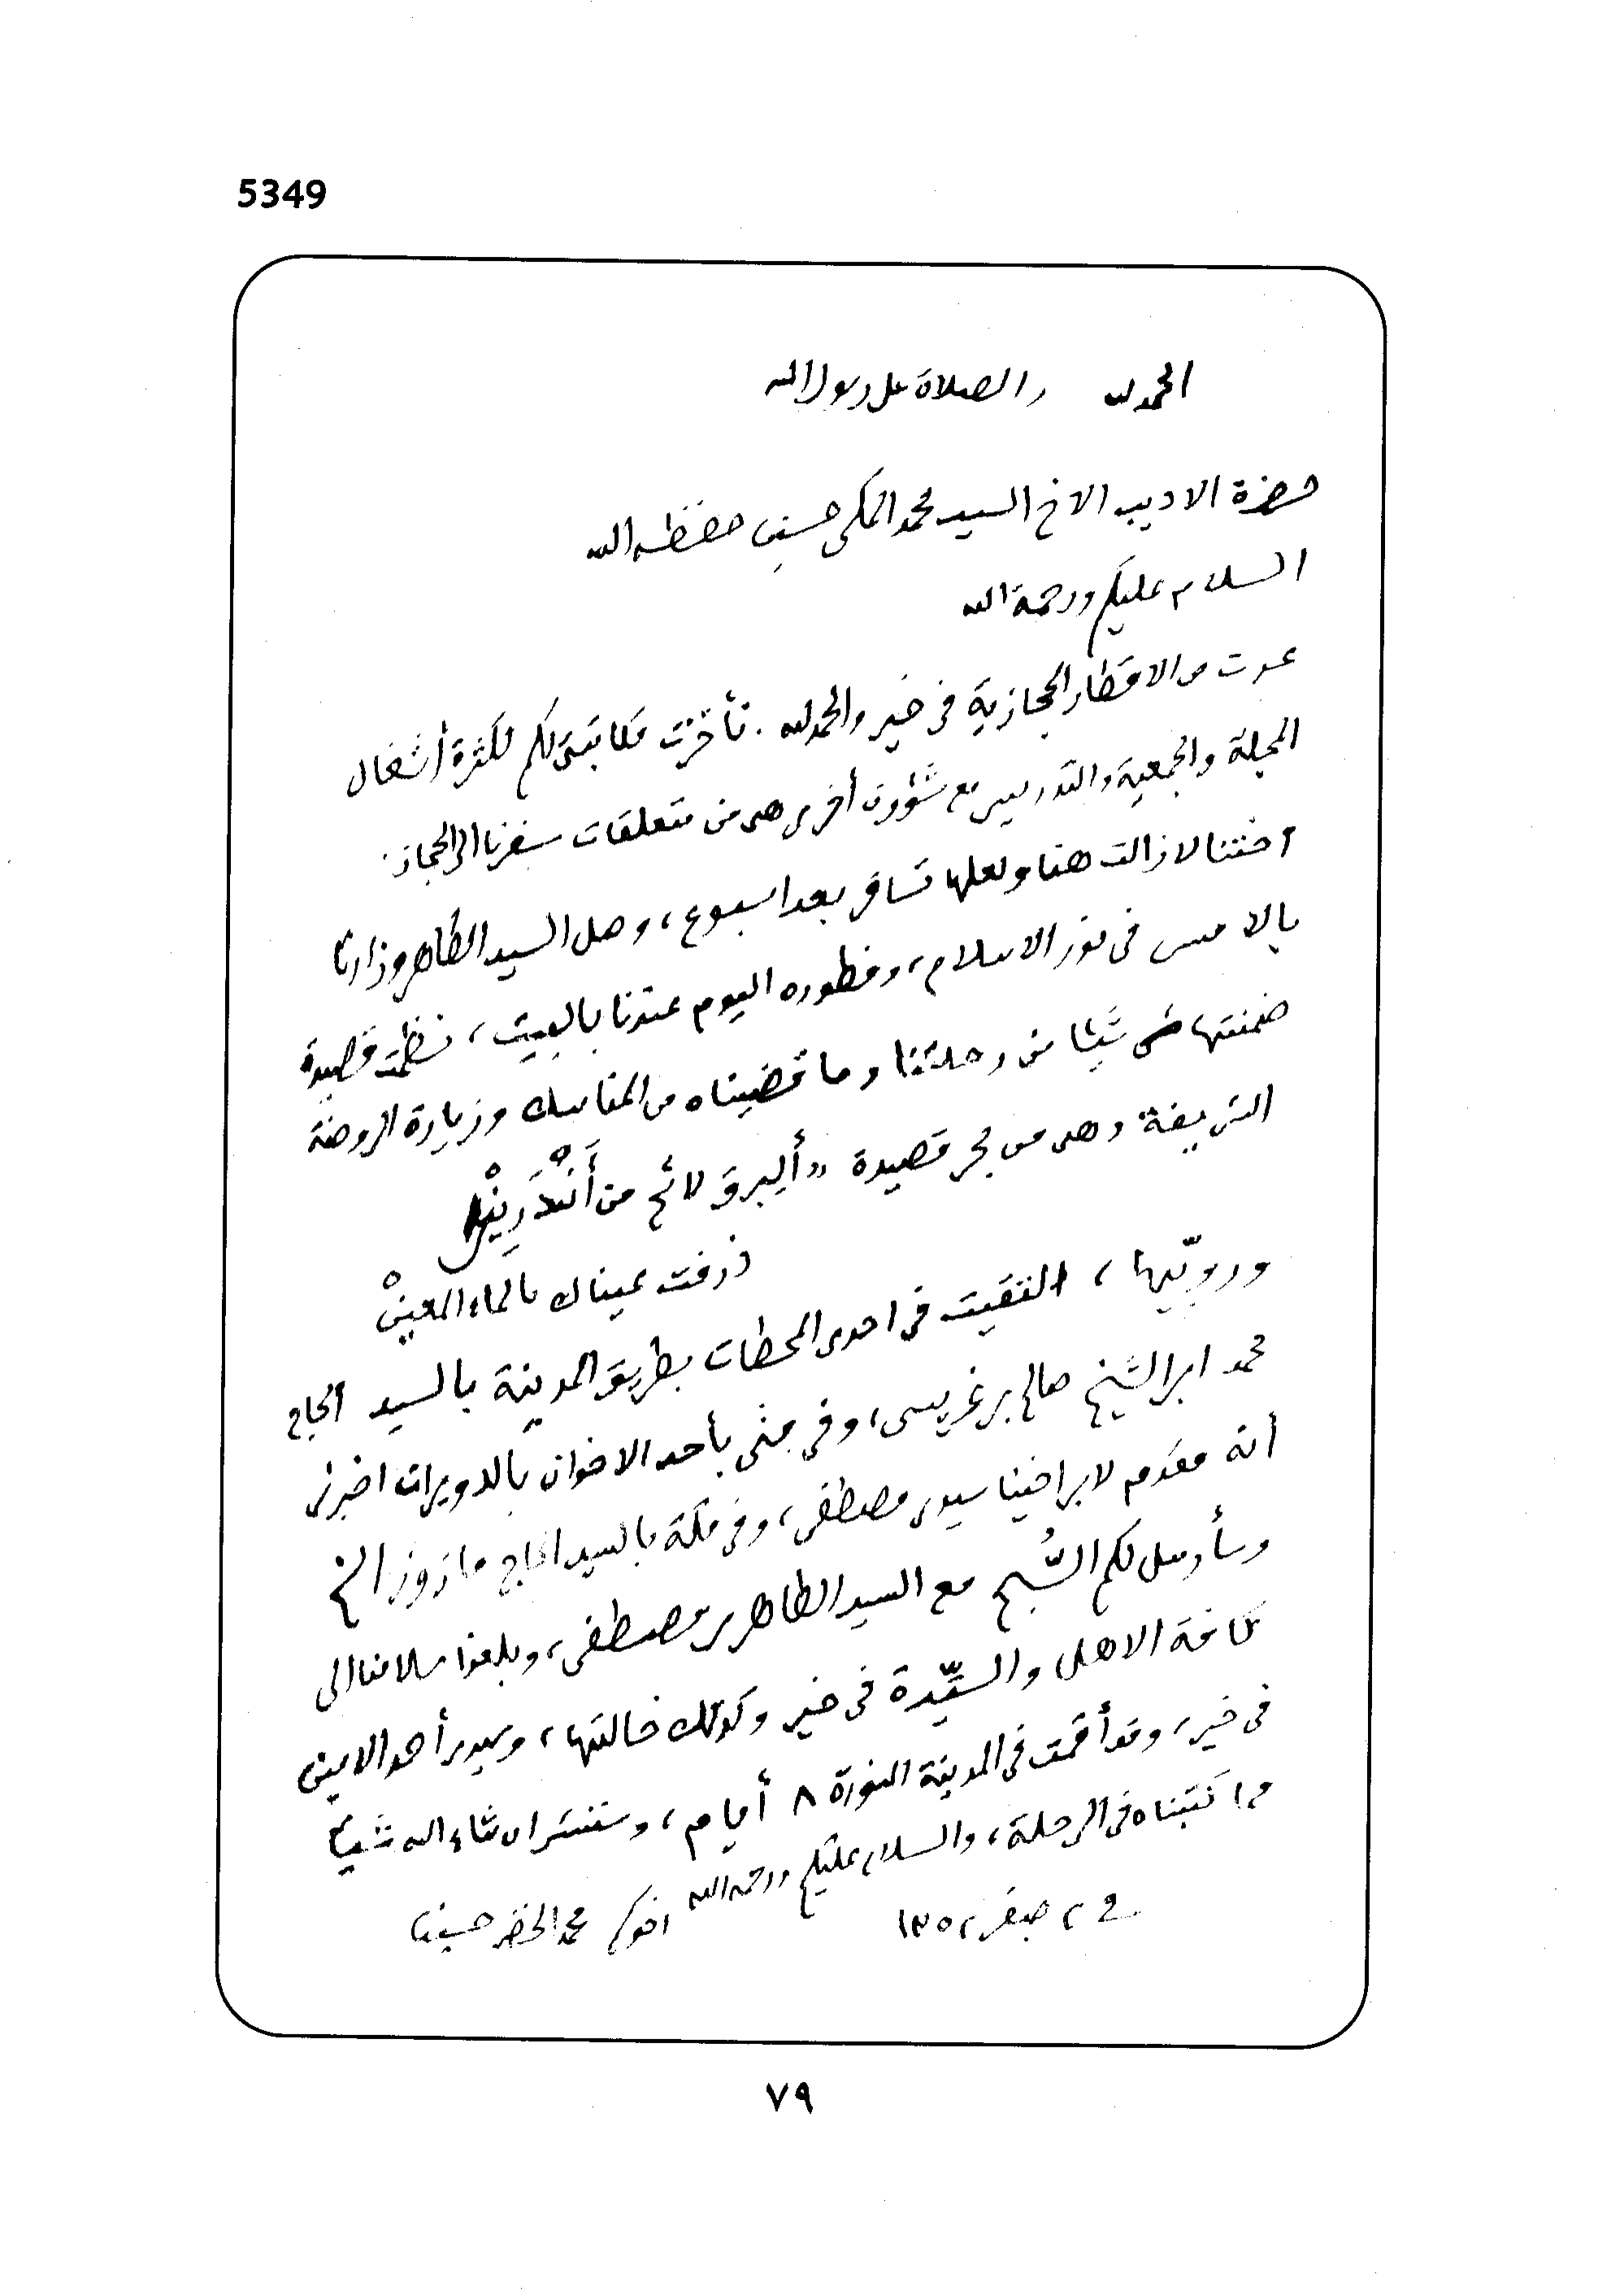 5349
الحمد لله والصلاة على رسول الله
حضرة الاديب الاخ السيد محمد المكي حسين حفظه الله
السلام عليكم ورحمة الله
عدت من الاقطار الحجازية في خير والحمد لله . تأخرت مكاتبتي لكم لكثرة أشغال
المجلة والجمعية والتدريس مع شؤون أخرى هي من متعلقات سفرنا الى الحجاز .
اختنا لا زالت هنا ولعلها تسافر بعد اسبوع ، وصل السيد الطاهر وزارنا
بالامس في نور الاسلام ، وفطوره اليوم عندنا بالبيت ، نظمت قصيدة
ضمنتها شيئا من رحلتنا وما قضيناه من المناسك وزيارة الروضة
الشريفة وهي من بحر قصيدة « ألبرق لائح من أَنْدَرِينْ
ذرفت عيناك بالماء المعينْ
ورويّها ، التقيت في احدى المحطات بطريق المدينة بالسيد الحاج
محمد ابن الشيخ صالح بن غريسي ، وفي منى بأحد الاخوان بالدويرات اخبرني
أنه مقدم لابن اخينا سيدي مصطفى ، وفي مكة بالسيد الحاج مازوز الخ
وسأرسل لكم السُّبح مع السيد الطاهر بن مصطفى ، وبلغوا سلامنا الى
كافة الاهل والسيّدة في خير وكذلك خالتها ، وسيدي أحمد الامين
في خير ، وقد أقمت في المدينة المنورة ٨ أيام ، وسننشر ان شاء الله شيئا
مما كتبناه في الرحلة ، والسلام عليكم ورحمة الله
في ٢ صفر ١٣٥٢ اخوكم محمد الخضر حسين
٧٩